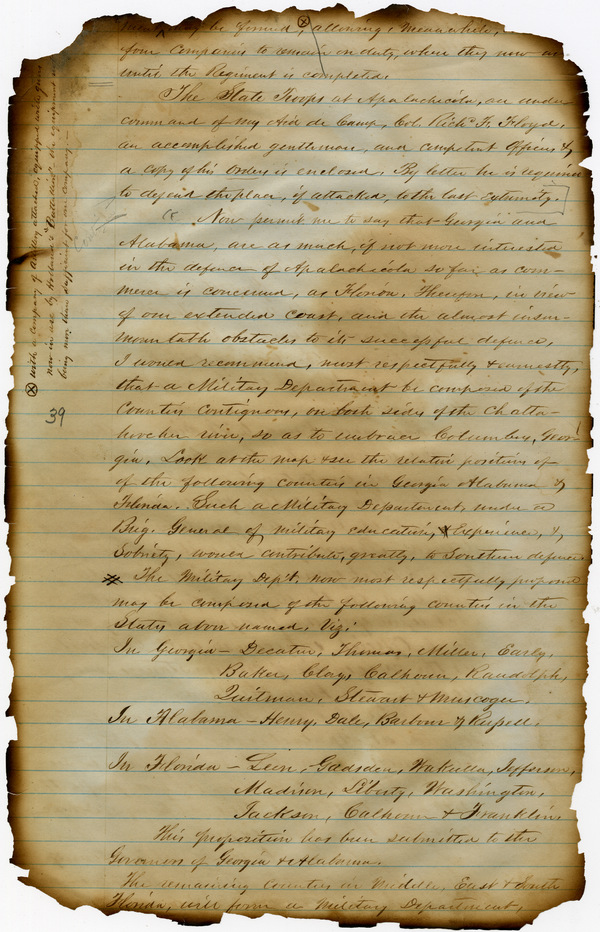 may be formed, ⓧ allowing, meanwhile,
four Companies to remain on duty, where they now are
until the Regiment is completed.
The State Troops at Apalachicola, are under
command of my Aid de Camp, Col. Richd. F. Floyd,
an accomplished gentleman, and competent Officer &,
a copy of his orders is enclosed. By letter he is required
to defend the place, if attacked, to the last extremity.
Now permit me to say that Georgia and
Alabama, are as much, if not more interested
in the defence of Apalachicola so far, as com-
merce is concerned, as Florida. Therefore, in view
of our extended coast, and the almost insur-
mountable obstacles to its successful defence,
I would recommend, most respectfully & earnestly,
that a Military Department be composed of the
Counties contiguous, on both sides of the Chatta-
hoochee river, so as to embrace Columbus, Geor-
gia. Look at the map & see the relative positions of
of the following counties in Georgia Alabama &,
Florida. Such a Military Department, under a
Brig. General of military education, & Experience, &,
Sobriety, would contribute, greatly, to Southern defence
The Military Dep't. now most respectfully proposed
may be composed of the following counties in the
States above named, Viz:
In Georgia - Decatur, Thomas, Miller, Early,
Baker, Clay, Calhoun, Randolph,
Quitman, Stewart & Muscogee.
In Alabama - Henry, Dale, Barbour & Russell.
In Florida - Leon, Gadsden, Wakulla, Jefferson,
Madison, Liberty, Washington,
Jackson, Calhoun & Franklin.
This proposition has been submitted to the
Governors of Georgia & Alabama.
The remaining Counties in Middle, East & South
Florida, will form a Military Department,
ⓧ with a company of Artillery attached, equipped with guns
now in use by Holland's Battalion, the equipment
being more than sufficient for one company -
39